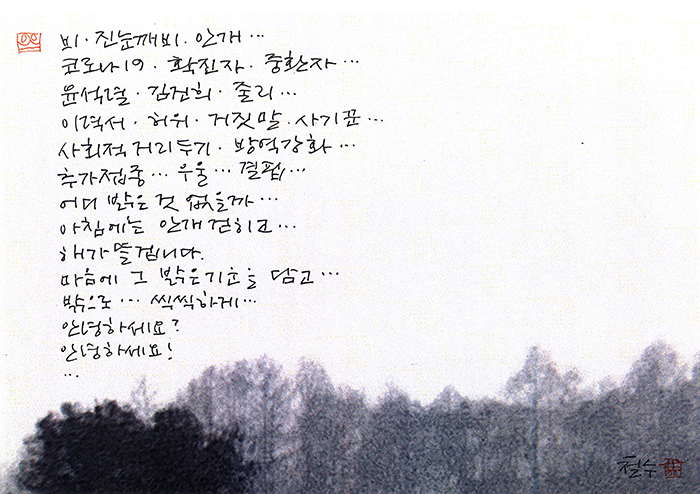 비·진눈깨비·안개…
코로나19·확진자·중환자…
윤석열·김건희·줄리…
이력서·허위·거짓말·사기꾼…
사회적거리두기·방역강화…
추가접종… 우울… 결핍…
어디 밝은 것 없을까…
아침에는 안개 걷히고…
해가 뜰겁니다.
마음에 그 밝은기운을 담고…
밖으로… 씩씩하게…
안녕하세요?
안녕하세요!
…
철수